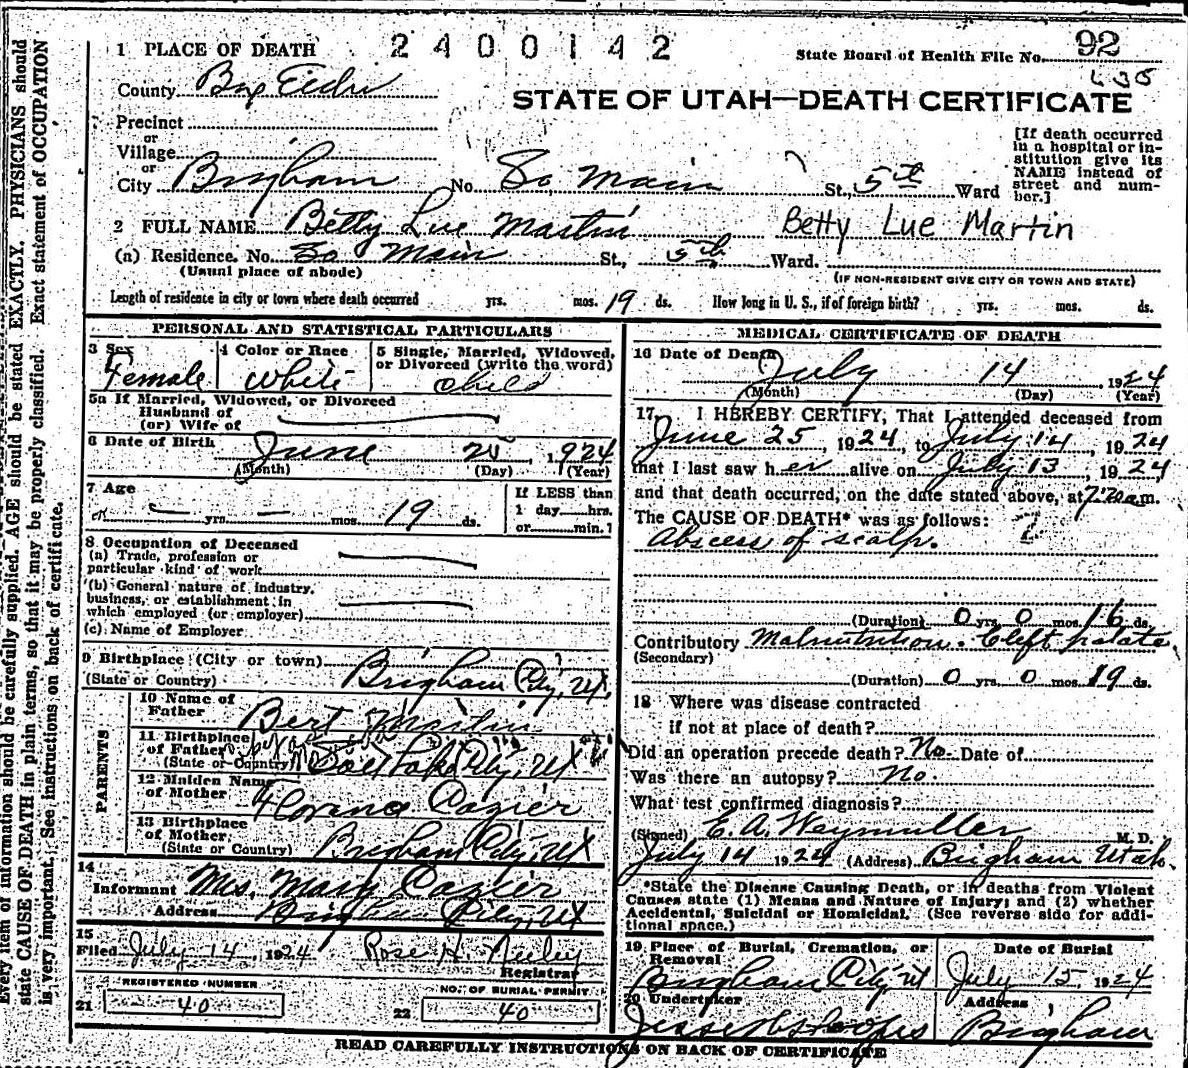 1 PLACE OF DEATH 2400142 State Board of Health File No. 92
County Box Elder
STATE OF UTAH—DEATH CERTIFICATE
Precinct
or
Village
or
City Brigham No. So Main St., 5th Ward
[If death occurred in a hospital or institution give its NAME instead of street and number.]
2 FULL NAME Betty Lue Martin Betty Lue Martin
(a) Residence. No. So Main St., 5th Ward.
(Usual place of abode) (IF NON-RESIDENT GIVE CITY OR TOWN AND STATE)
Length of residence in city or town where death occurred yrs. mos. 19 ds. How long in U. S., if of foreign birth? yrs. mos. ds.
PERSONAL AND STATISTICAL PARTICULARS
3 Sex 4 Color or Race 5 Single, Married, Widowed, or Divorced (write the word)
Female White Child
5a If Married, Widowed, or Divorced
Husband of
(or) Wife of
6 Date of Birth June 25, 1924
(Month) (Day) (Year)
7 Age If LESS than
1 day hrs.
or min.?
yrs. mos. 19 ds.
8 Occupation of Deceased
(a) Trade, profession or
particular kind of work
(b) General nature of industry,
business, or establishment in
which employed (or employer)
(c) Name of Employer
9 Birthplace (City or town)
(State or Country) Brigham City, Ut.
PARENTS
10 Name of
Father Bert Martin
11 Birthplace
of Father
(State or Country) Salt Lake City, Ut
12 Maiden Name
of Mother Florana Cozier
13 Birthplace
of Mother
(State or Country) Brigham City, Ut
14
Informant Mrs. Mary Cozier
Address Brigham City, Ut
15
Filed July 14, 1924 Rose H. Neeley
Registrar
REGISTERED NUMBER NO. OF BURIAL PERMIT
21 40 22 40
MEDICAL CERTIFICATE OF DEATH
16 Date of Death
July 14, 1924
(Month) (Day) (Year)
17 I HEREBY CERTIFY, That I attended deceased from
June 25, 1924, to July 14, 1924
that I last saw her alive on July 13, 1924
and that death occurred, on the date stated above, at m.
The CAUSE OF DEATH* was as follows:
Abscess of scalp.
(Duration) 0 yrs. 0 mos. 16 ds.
Contributory Malnutrition. Cleft palate
(Secondary)
(Duration) 0 yrs. 0 mos. 19 ds.
18 Where was disease contracted
if not at place of death?
Did an operation precede death? No. Date of
Was there an autopsy? No.
What test confirmed diagnosis?
(Signed) E. A. Weymuller M. D.
July 14 1924 (Address) Brigham Utah
*State the Disease Causing Death, or in deaths from Violent
Causes state (1) Means and Nature of Injury; and (2) whether
Accidental, Suicidal or Homicidal. (See reverse side for addi-
tional space.)
19 Place of Burial, Cremation, or Removal Date of Burial
Brigham City, Ut July 15, 1924
20 Undertaker Address
Brigham
READ CAREFULLY INSTRUCTIONS ON BACK OF CERTIFICATE
Every item of information should be carefully supplied. AGE should be stated EXACTLY. PHYSICIANS should
state CAUSE OF DEATH in plain terms, so that it may be properly classified. Exact statement of OCCUPATION
is very important. See instructions on back of certificate.